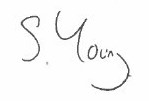 S. Young